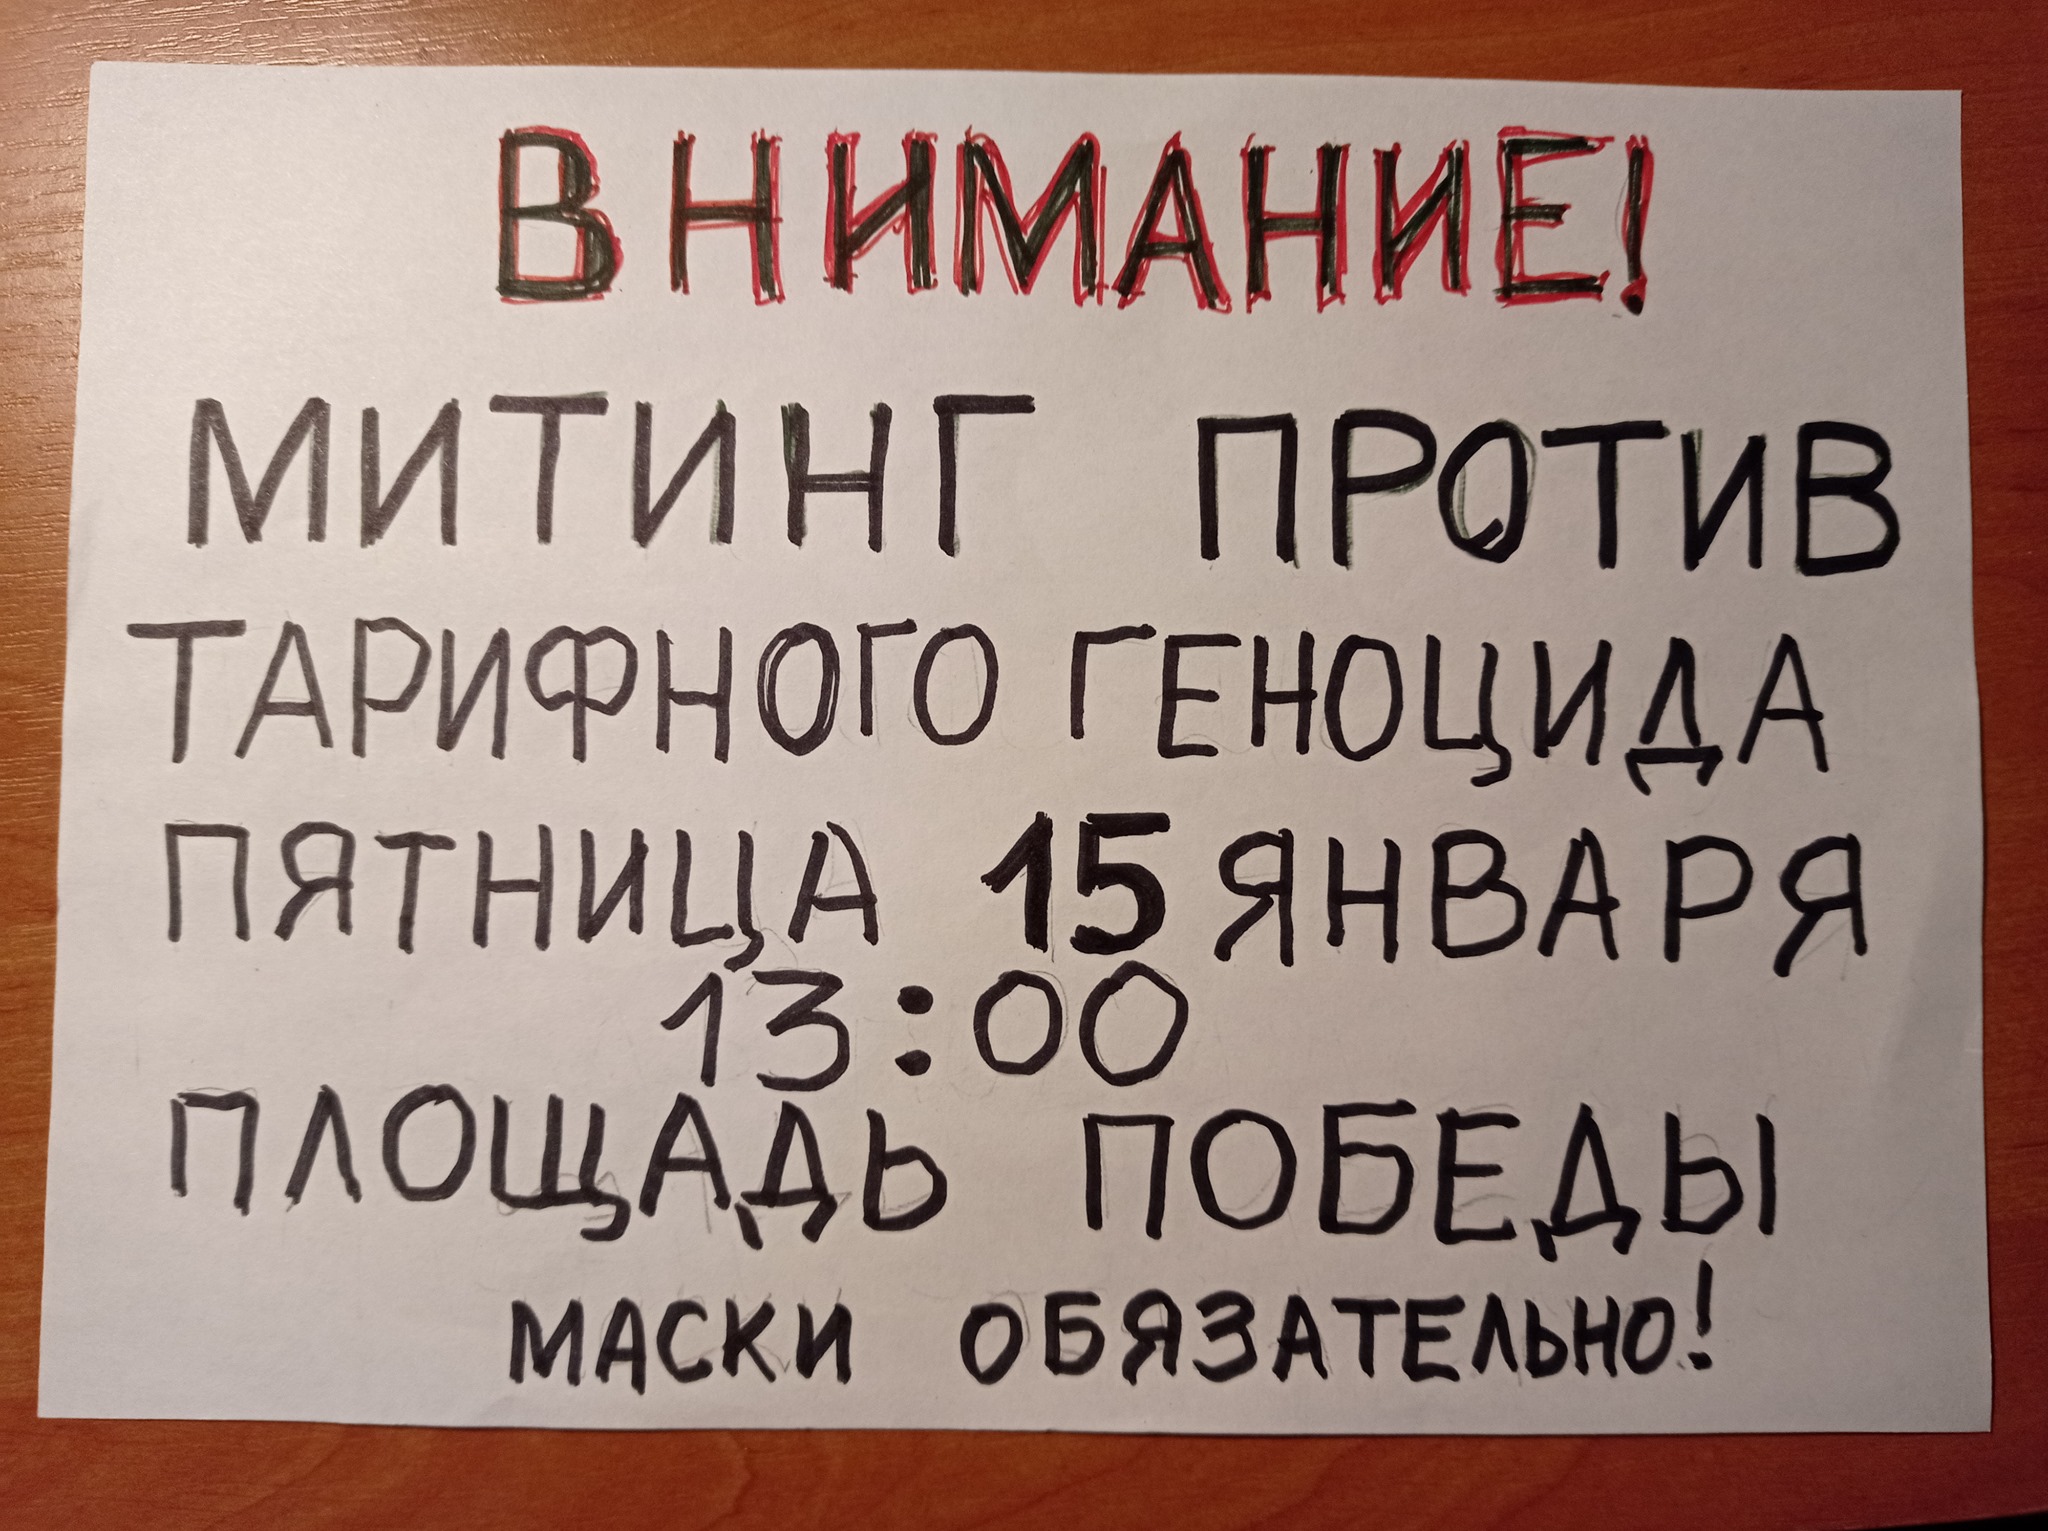 ВНИМАНИЕ!
МИТИНГ ПРОТИВ
ТАРИФНОГО ГЕНОЦИДА
ПЯТНИЦА 15 ЯНВАРЯ
13:00
ПЛОЩАДЬ ПОБЕДЫ
МАСКИ ОБЯЗАТЕЛЬНО!